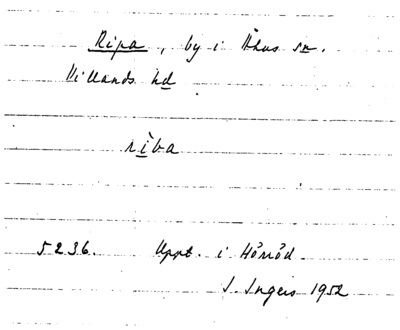 Ripa, by i Åhus sn.
Villands hd
riba
5236. Uppt. i Hörröd
I. Ingers 1952